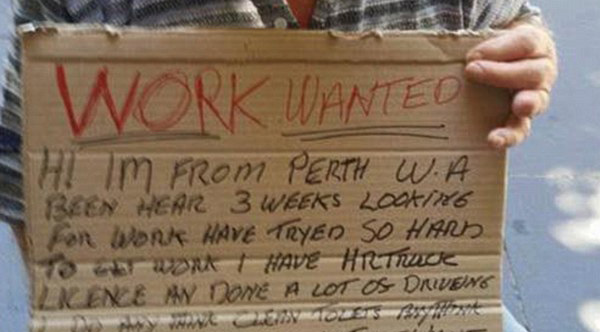 WORK WANTED
HI IM FROM PERTH W.A
BEEN HEAR 3 WEEKS LOOKING
FOR WORK HAVE TRYED SO HARD
TO GET WORK I HAVE HRTRUCK
LICENCE AN DONE A LOT OS DRIVEING
I DO ANY THINK CLEAN TOLETS ANYTHINK